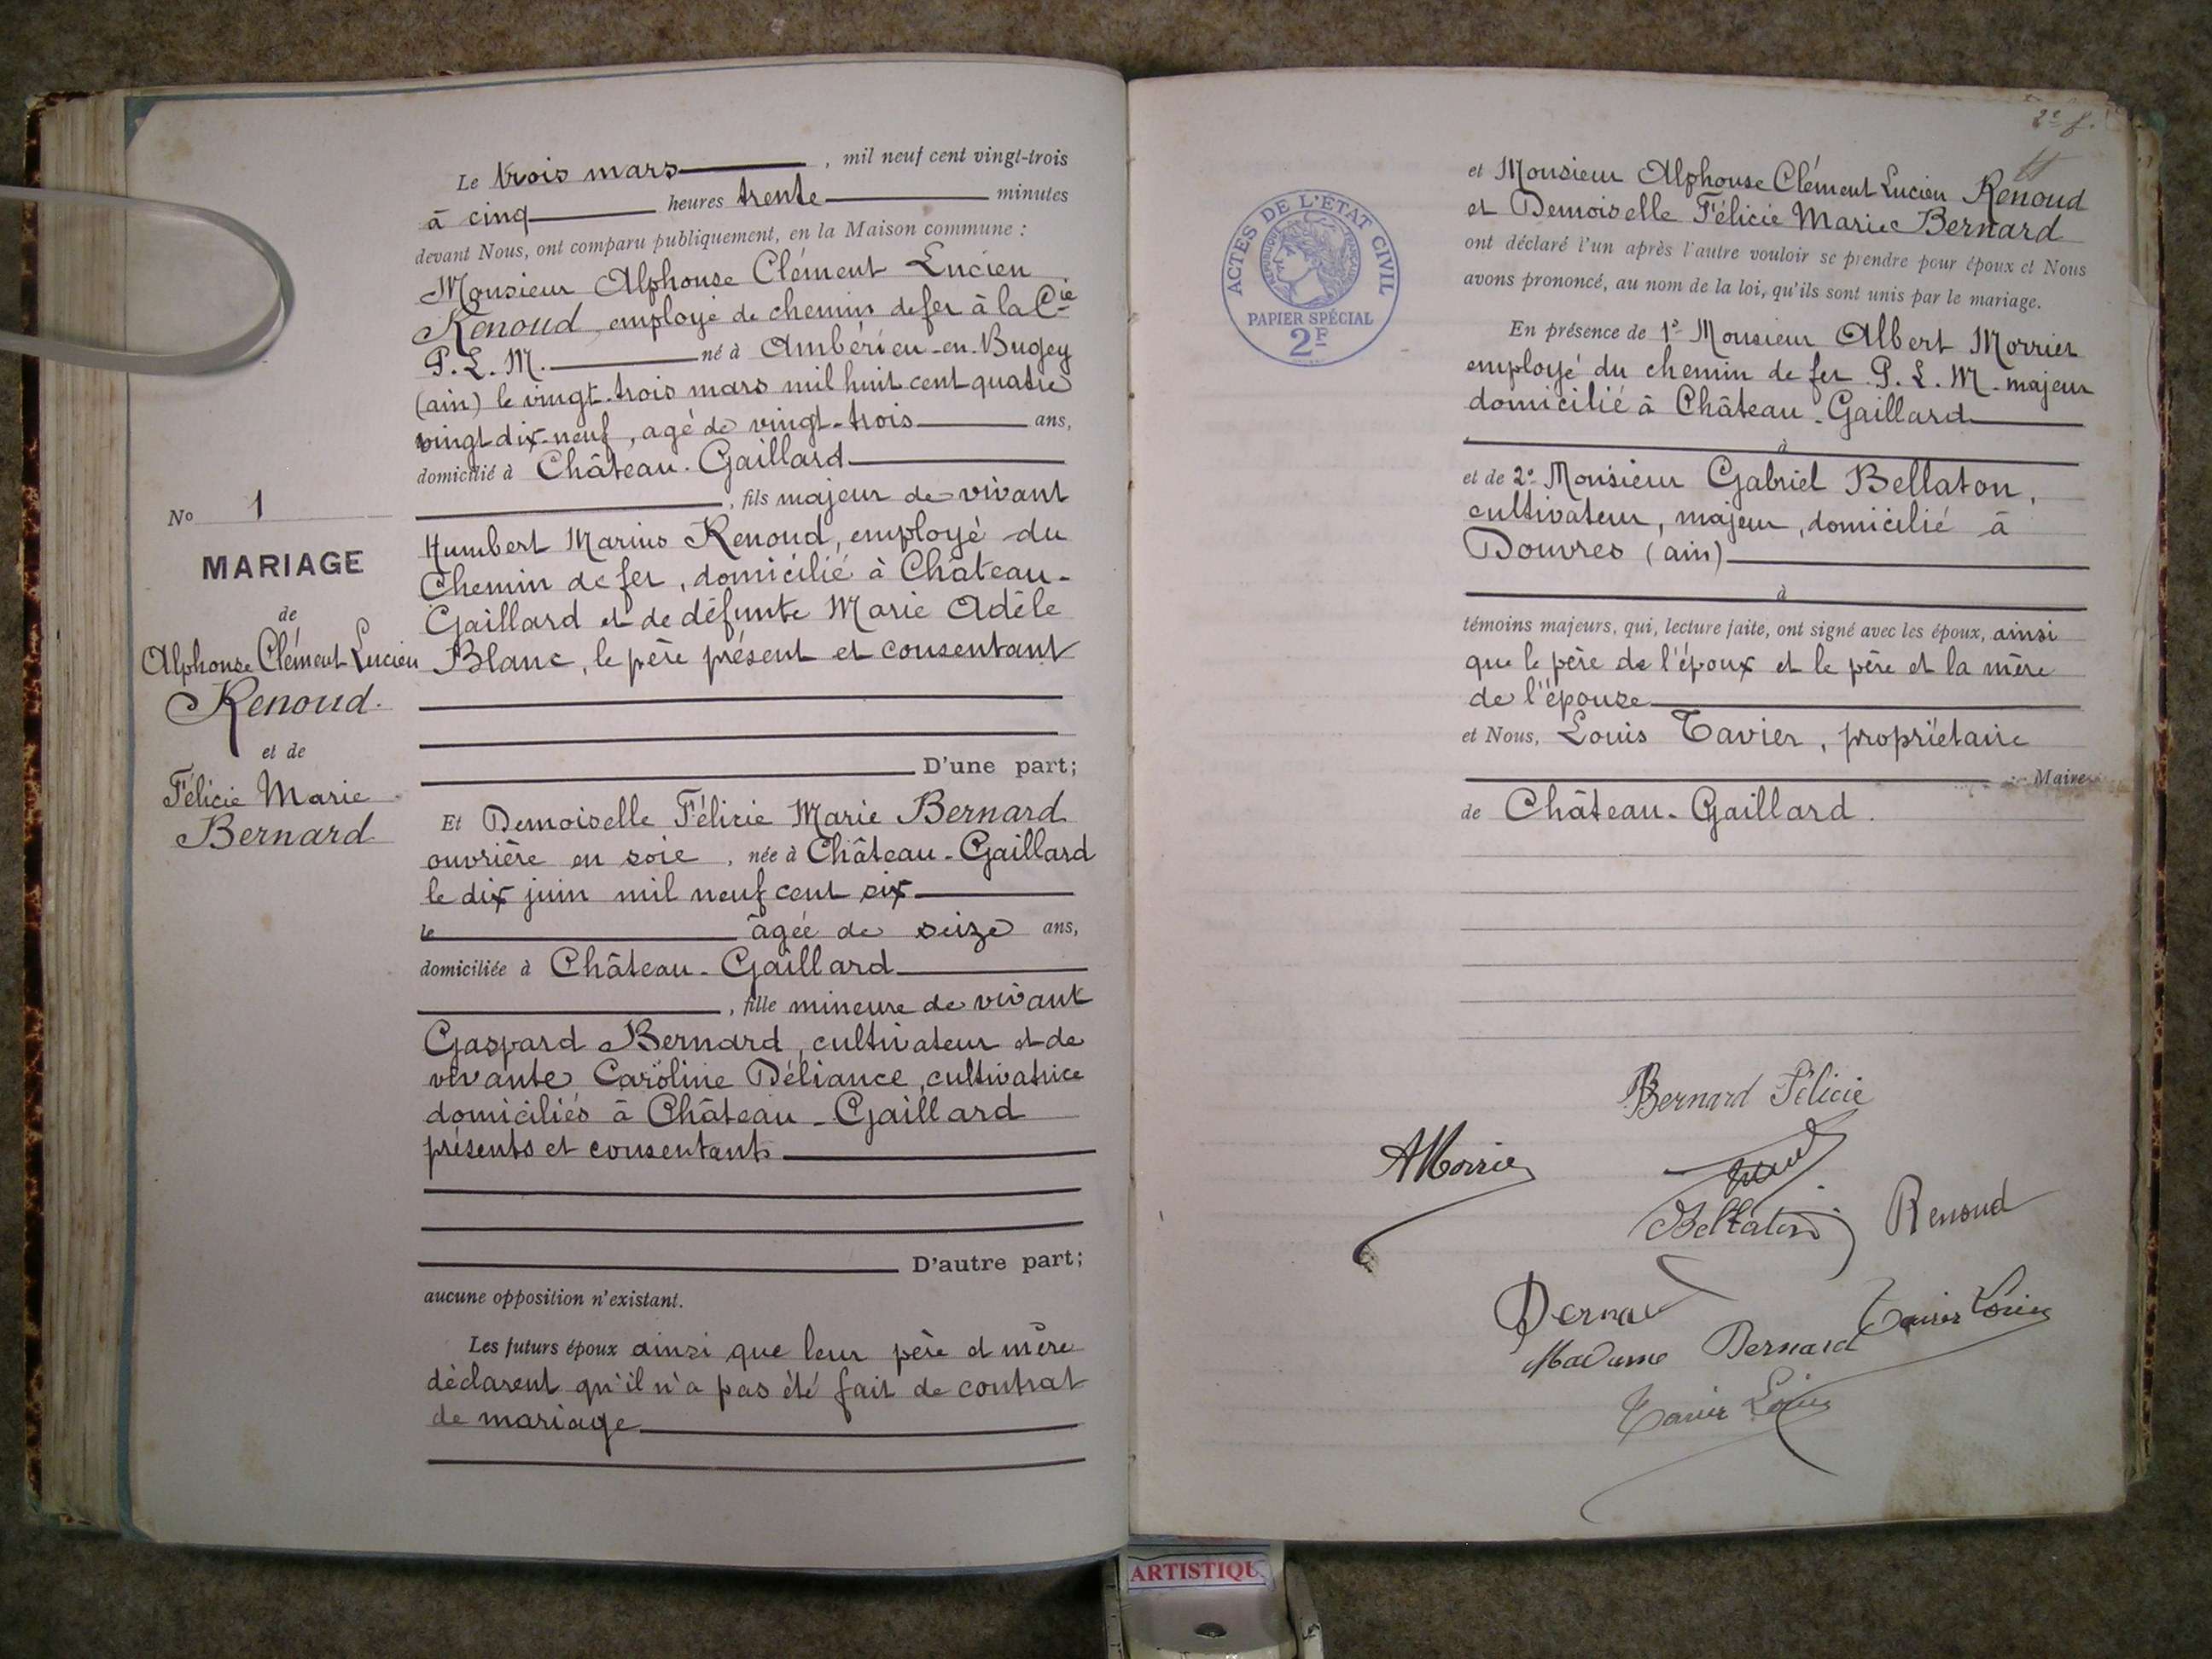 Le trois mars, mil neuf cent vingt-trois
à cinq heures trente minutes
devant Nous, ont comparu publiquement, en la Maison commune :
Monsieur Alphonse Clément Lucien
Renoud, employé de chemin de fer à la Cie
P. L. M. né à Ambérieu-en-Bugey
(ain) le vingt-trois mars mil huit cent quatre
vingt dix-neuf, agé de vingt-trois ans,
domicilié à Château-Gaillard
, fils majeur de vivant
Humbert Marius Renoud, employé du
Chemin de fer, domicilié à Château-
Gaillard et de défunte Marie Adèle
Blanc, le père présent et consentant
D'une part;
Et Demoiselle Félicie Marie Bernard
ouvrière en soie, née à Château-Gaillard
le dix juin mil neuf cent six
le âgée de seize ans,
domiciliée à Château-Gaillard
, fille mineure de vivant
Gaspard Bernard, cultivateur et de
vivante Caroline Déliance, cultivatrice
domiciliés à Château-Gaillard
présents et consentants
D'autre part;
aucune opposition n'existant.
Les futurs époux ainsi que leur père et mère
déclarent qu'il n'a pas été fait de contrat
de mariage
No 1
MARIAGE
de
Alphonse Clément Lucien
Renoud.
et de
Félicie Marie
Bernard
2e f.
et Monsieur Alphonse Clément Lucien Renoud
et Demoiselle Félicie Marie Bernard
ont déclaré l'un après l'autre vouloir se prendre pour époux et Nous
avons prononcé, au nom de la loi, qu'ils sont unis par le mariage.
En présence de 1º Monsieur Albert Morrier
employé du chemin de fer P. L. M. majeur
domicilié à Château-Gaillard
à
et de 2º Monsieur Gabriel Bellaton,
cultivateur, majeur, domicilié à
Douvres (ain)
à
témoins majeurs, qui, lecture faite, ont signé avec les époux, ainsi
que le père de l'époux et le père et la mère
de l'épouse
et Nous, Louis Tavier, propriétaire
Maire
de Château-Gaillard.
ACTES DE L'ETAT CIVIL
REPUBLIQUE FRANÇAISE
PAPIER SPÉCIAL
2F
Bernard Félicie
AMorrier
Bellaton
Renoud
Tavier Louis
Madame Bernard
Tavier Louis
ARTISTIQU